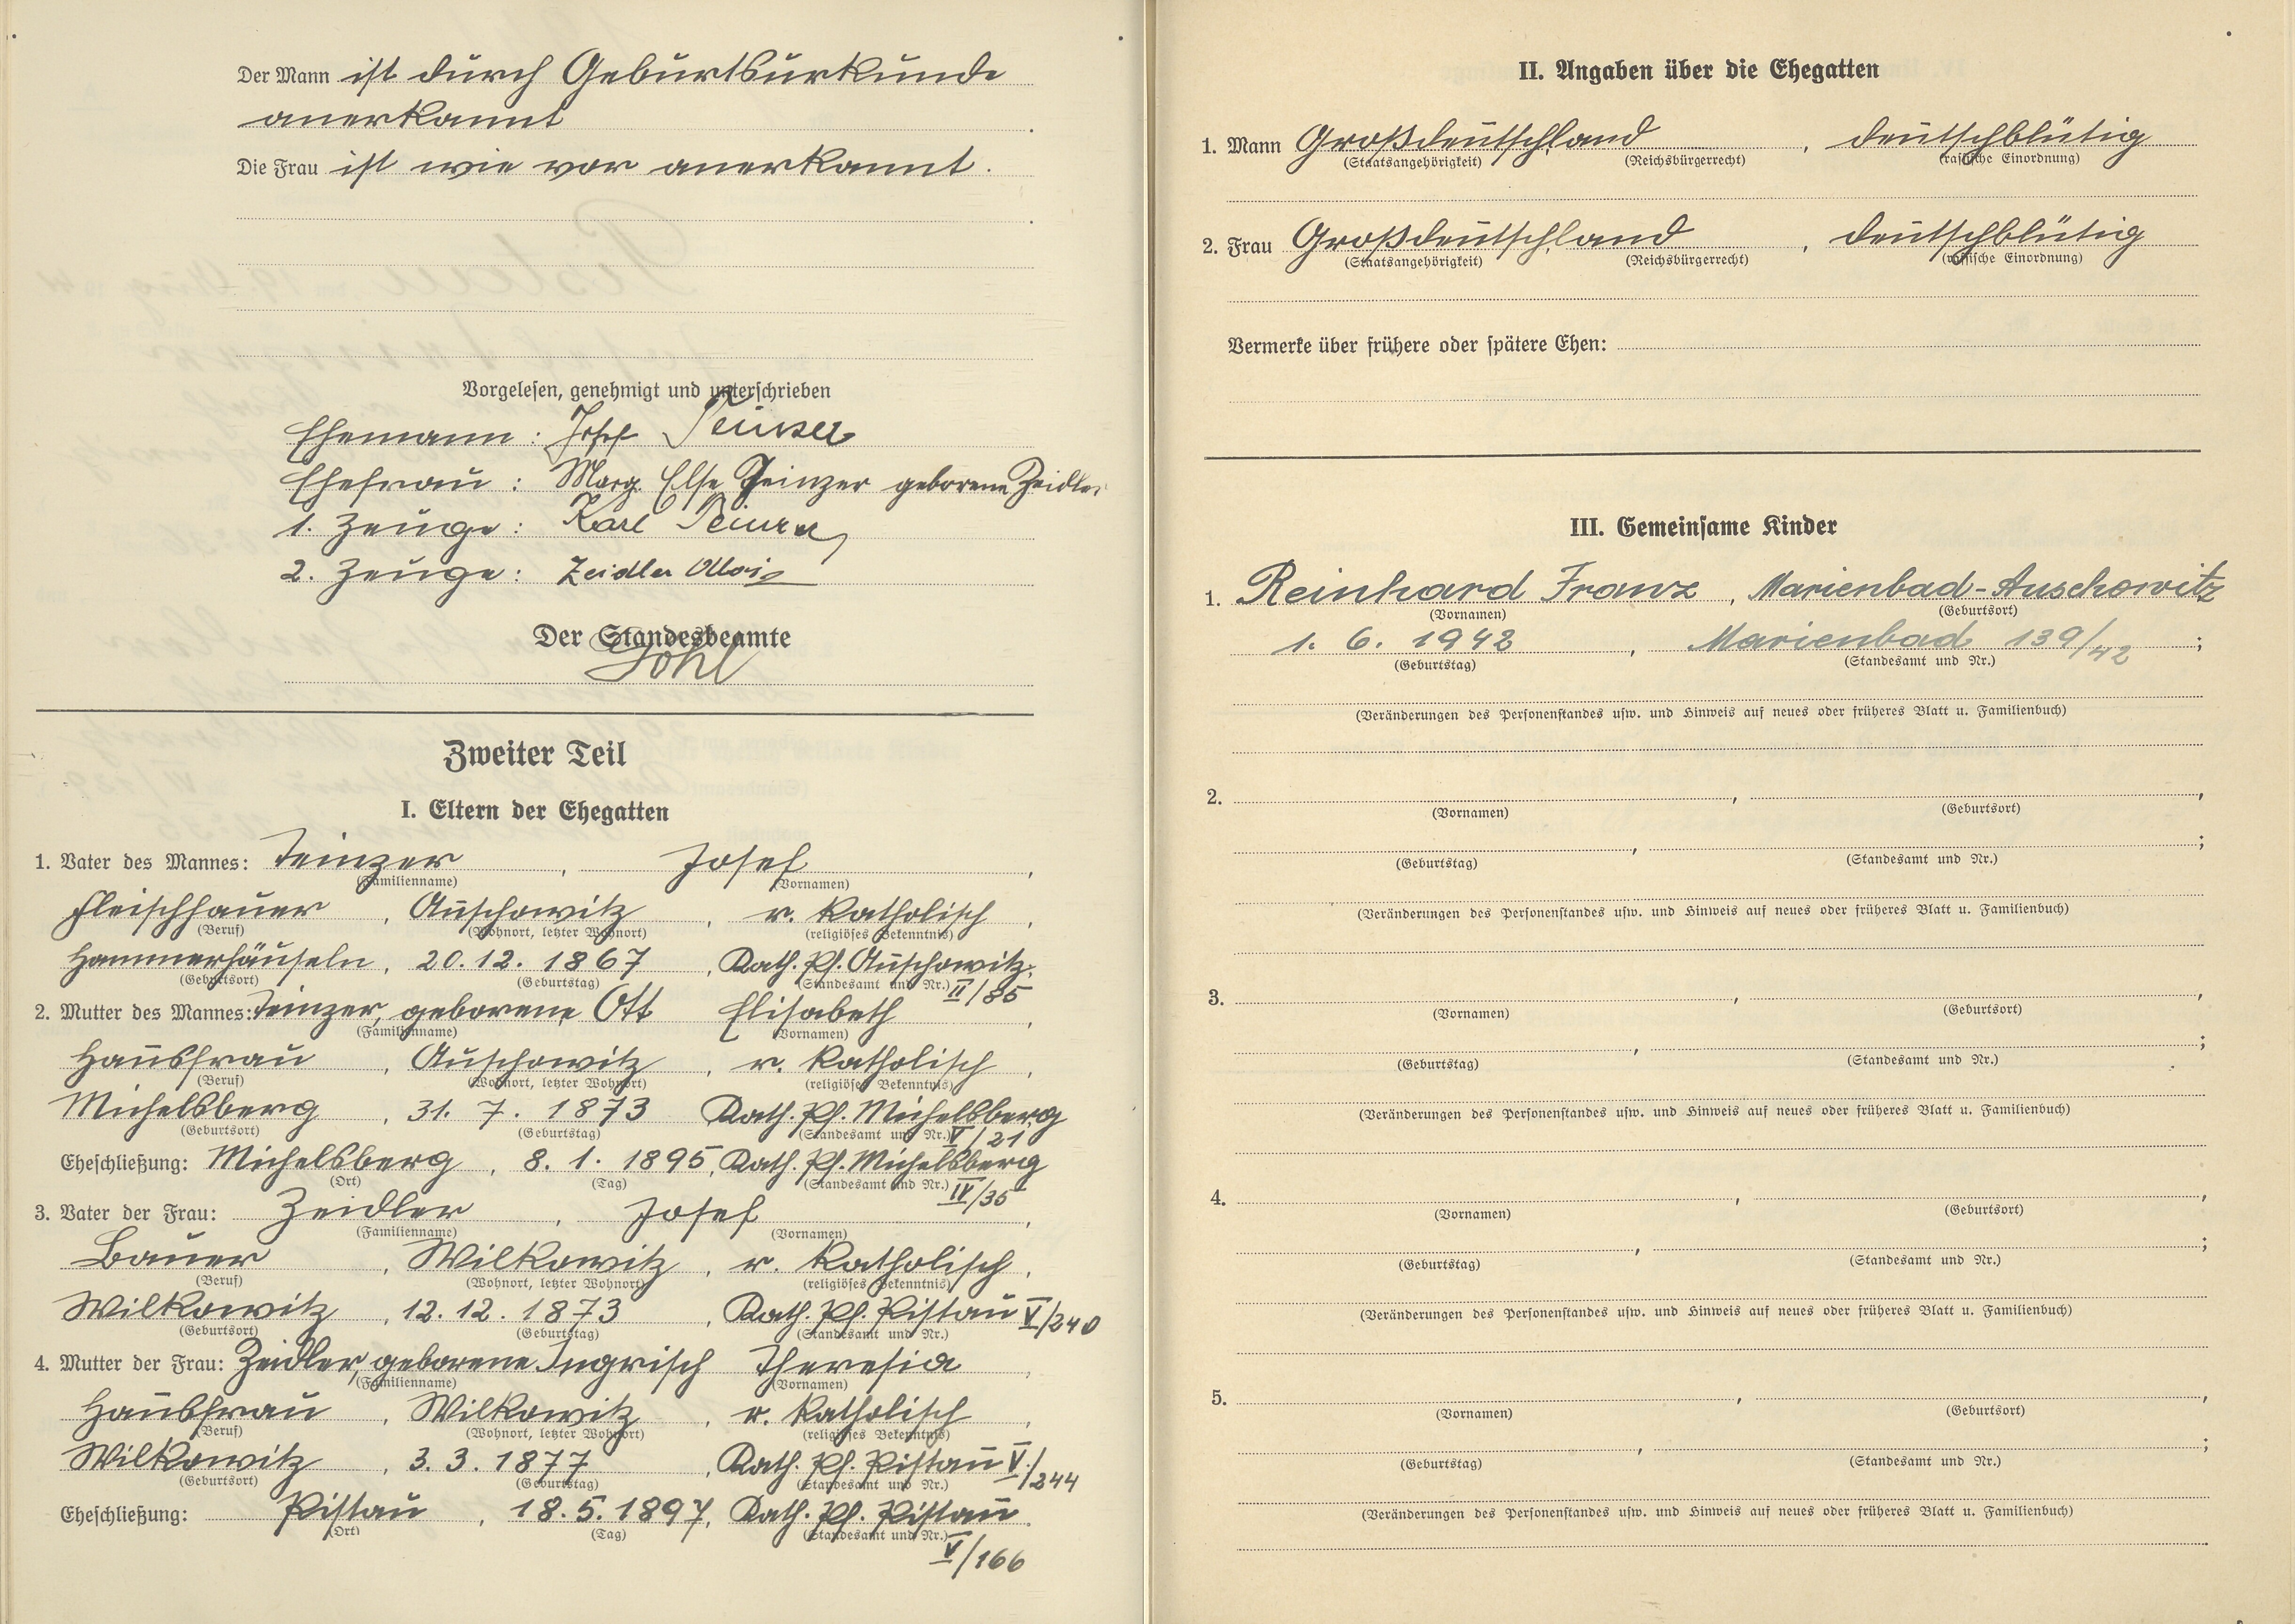 Der Mann ist durch Geburtsurkunde
anerkannt
Die Frau ist wie vor anerkannt.
Vorgelesen, genehmigt und unterschrieben
Ehemann: Josef Teinzer
Ehefrau: Marg. Else Teinzer geborene Zeidler
1. Zeuge: Karl
2. Zeuge: Zeidler Alois
Der Standesbeamte
Zweiter Teil
I. Eltern der Ehegatten
1. Vater des Mannes: Teinzer, Josef,
(Familienname) (Vornamen)
Fleischhauer, Auschowitz, r. katholisch,
(Beruf) (Wohnort, letzter Wohnort) (religiöses Bekenntnis)
Hammerhäuseln, 20.12.1867, Kath. Pf. Auschowitz
(Geburtsort) (Geburtstag) (Standesamt und Nr.) II/85
2. Mutter des Mannes: Teinzer, geborene Ott Elisabeth,
(Familienname) (Vornamen)
Hausfrau, Auschowitz, r. katholisch,
(Beruf) (Wohnort, letzter Wohnort) (religiöses Bekenntnis)
Michelsberg, 31. 7. 1873 Kath. Pf. Michelsberg
(Geburtsort) (Geburtstag) (Standesamt und Nr.) V/21
Eheschließung: Michelsberg, 8. 1. 1895, Kath. Pf. Michelsberg
(Ort) (Tag) (Standesamt und Nr.) IV/35
3. Vater der Frau: Zeidler, Josef,
(Familienname) (Vornamen)
Bauer, Wilkowitz, r. katholisch,
(Beruf) (Wohnort, letzter Wohnort) (religiöses Bekenntnis)
Wilkowitz, 12.12.1873, Kath. Pf. Pistau V/240
(Geburtsort) (Geburtstag) (Standesamt und Nr.)
4. Mutter der Frau: Zeidler, geborene Ingrisch Theresia,
(Familienname) (Vornamen)
Hausfrau, Wilkowitz, r. katholisch,
(Beruf) (Wohnort, letzter Wohnort) (religiöses Bekenntnis)
Wilkowitz, 3. 3. 1877, Kath. Pf. Pistau V/244
(Geburtsort) (Geburtstag) (Standesamt und Nr.)
Eheschließung: Pistau, 18.5.1897, Kath. Pf. Pistau
(Ort) (Tag) (Standesamt und Nr.)
V/166
II. Angaben über die Ehegatten
1. Mann Großdeutschland, deutschblütig
(Staatsangehörigkeit) (Reichsbürgerrecht) (rassische Einordnung)
2. Frau Großdeutschland, deutschblütig
(Staatsangehörigkeit) (Reichsbürgerrecht) (rassische Einordnung)
Vermerke über frühere oder spätere Ehen:
III. Gemeinsame Kinder
1. Reinhard Franz, Marienbad-Auschowitz
(Vornamen) (Geburtsort)
1. 6. 1942, Marienbad 139/42;
(Geburtstag) (Standesamt und Nr.)
(Veränderungen des Personenstandes usw. und Hinweis auf neues oder früheres Blatt u. Familienbuch)
2. , ,
(Vornamen) (Geburtsort)
, ;
(Geburtstag) (Standesamt und Nr.)
(Veränderungen des Personenstandes usw. und Hinweis auf neues oder früheres Blatt u. Familienbuch)
3. , ,
(Vornamen) (Geburtsort)
, ;
(Geburtstag) (Standesamt und Nr.)
(Veränderungen des Personenstandes usw. und Hinweis auf neues oder früheres Blatt u. Familienbuch)
4. , ,
(Vornamen) (Geburtsort)
, ;
(Geburtstag) (Standesamt und Nr.)
(Veränderungen des Personenstandes usw. und Hinweis auf neues oder früheres Blatt u. Familienbuch)
5. , ,
(Vornamen) (Geburtsort)
, ;
(Geburtstag) (Standesamt und Nr.)
(Veränderungen des Personenstandes usw. und Hinweis auf neues oder früheres Blatt u. Familienbuch)